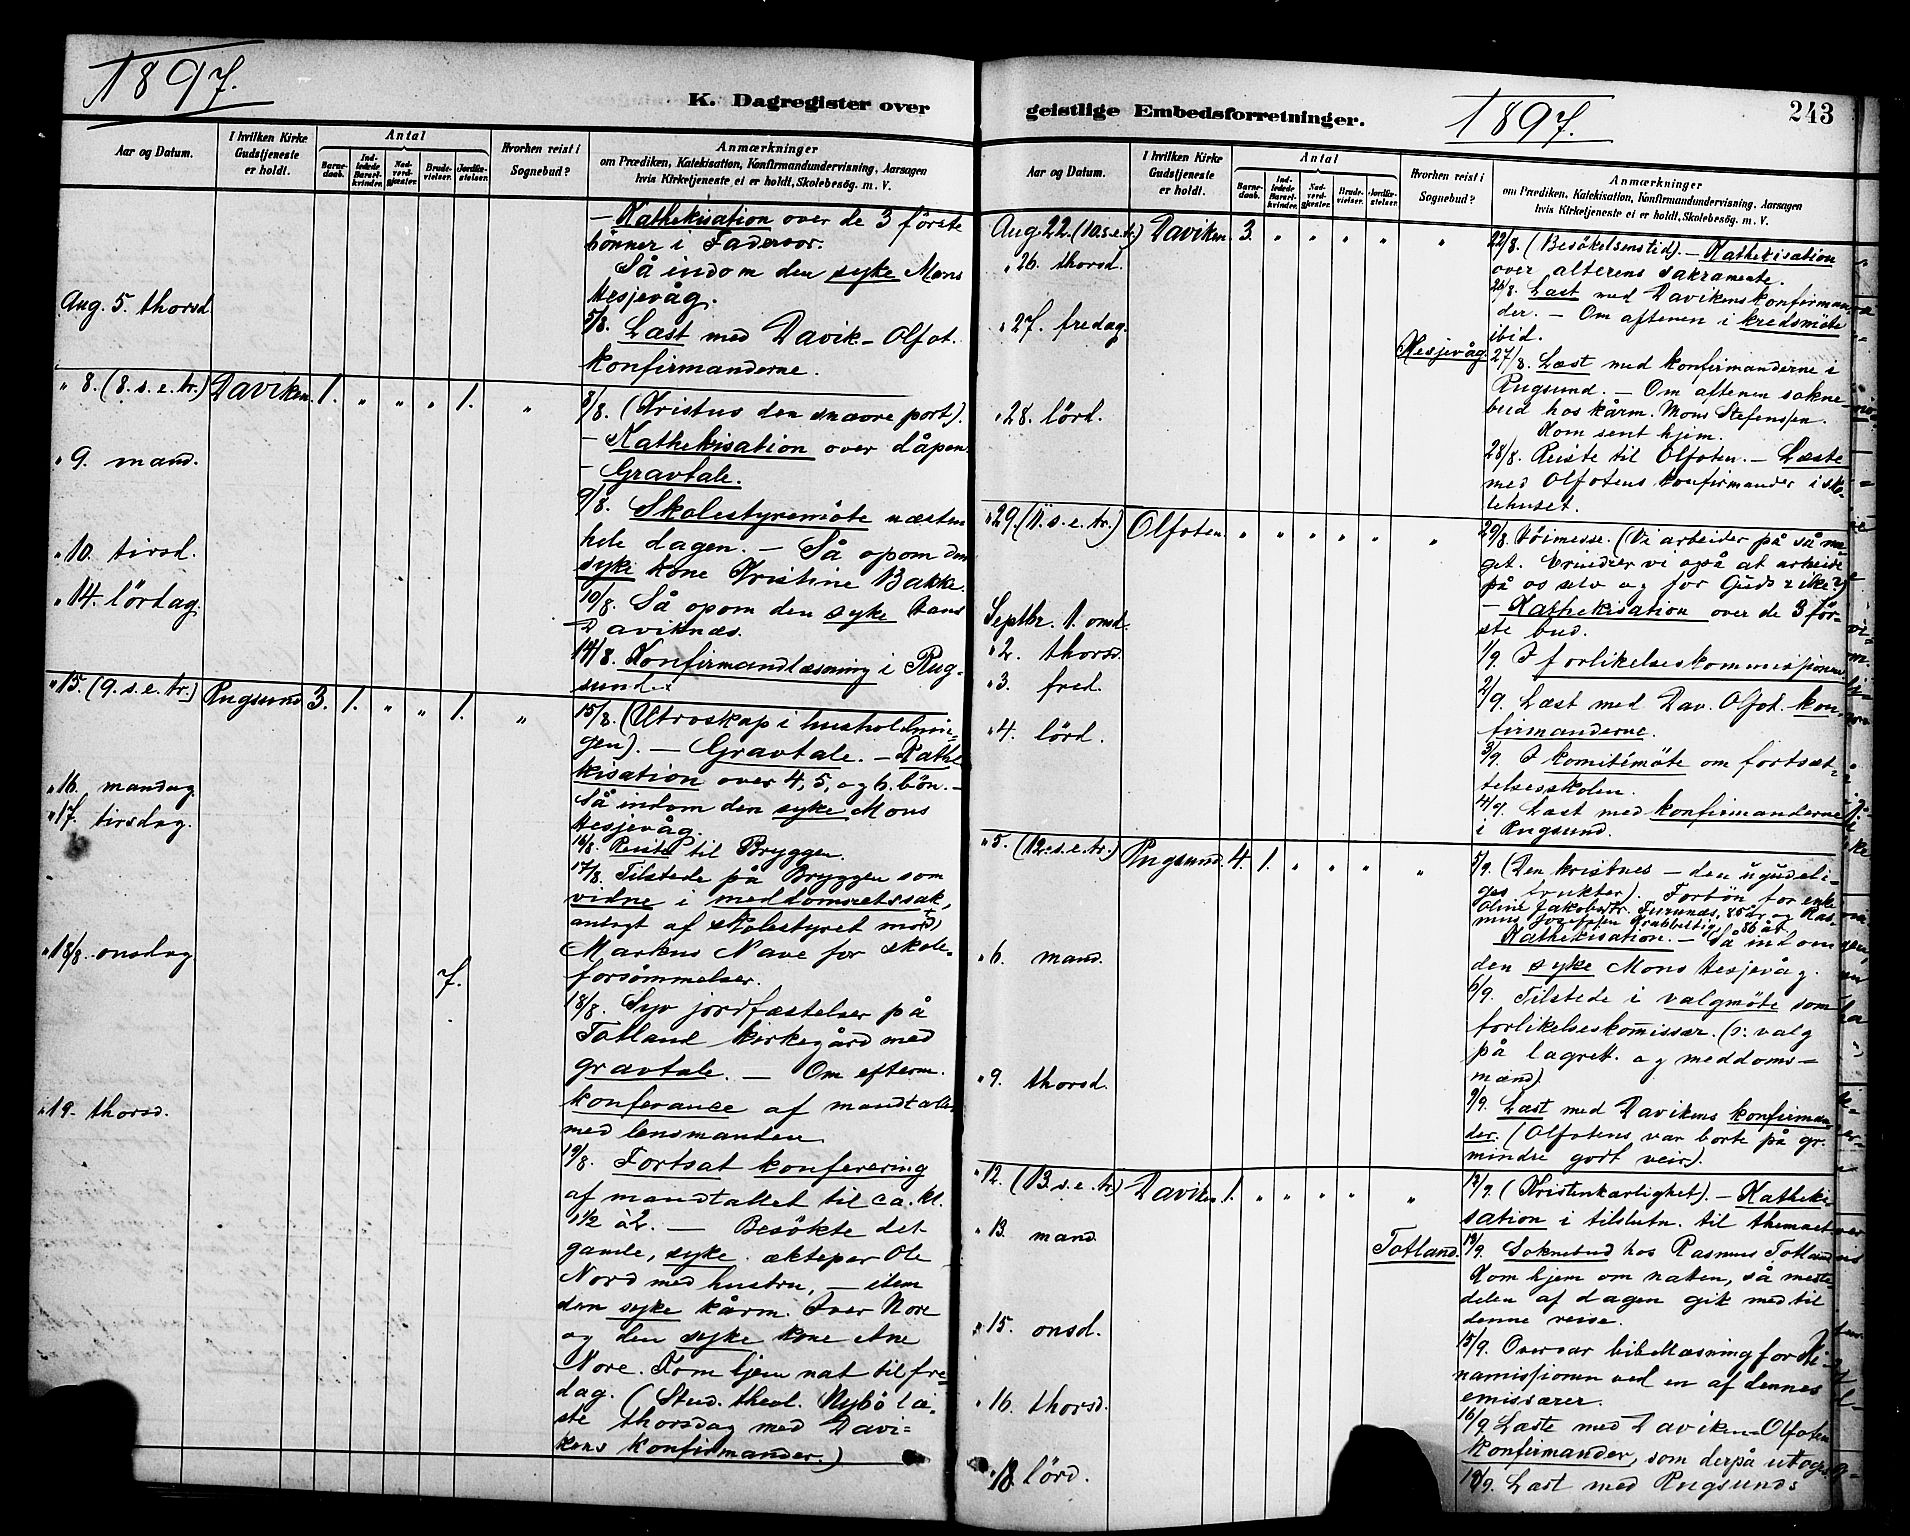 1897.
K. Dagregister over
Aar og Datum.
I hvilken Kirke Gudstjeneste er holdt.
Antal
Barne-daab.
Ind-ledede Barsel-kvinder.
Nad-verd-gjester.
Brude-vielser.
Jordfæ-stelser.
Hvorhen reist i Sognebud?
Anmærkninger
om Prædiken, Katekisation, Konfirmandundervisning, Aarsagen
hvis Kirketjeneste ei er holdt, Skolebesøg. m. V.
– Kathekisation over de 3 förste
bönner i Fadervor.
Så indom den syke Mons
Hesjevåg.
Aug. 5. thorsd.
5/8. Læst med Davik–Olfot.
konfirmanderne.
" 8. (8. s. e. tr.) Daviken. 1. " " " 1. "
8/8. (Kristus den snævre port).
– Kathekisation over dåpen.
– Gravtale.
" 9. mand.
9/8. Skolestyremöte næsten
hele dagen. – Så opom den
syke kone Kristine Bakke.
" 10. tirsd.
10/8. Så opom den syke Hans
Daviknæs.
" 14. lörtag.
14/8. Konfirmandlæsning i Rug-
sund.
" 15. (9. s. e. tr.) Rugsund 3. 1. " " 1. "
15/8. (Utroskap i husholdnin-
gen). – Gravtale. – Kathe-
kisation over 4, 5, og 6. bön. –
Så indom den syke Mons
Hesjevåg.
" 16. mandag
16/8. Reiste til Bryggen.
" 17. tirsdag.
17/8. Tilstede på Bryggen som
vidne i meddomsretssak,
anlagt af skolestyret mot
Markus Nave for skole-
forsömmelser.
" 18/8. onsdag 7.
18/8. Syv jordfæstelser på
Totland kirkegård med
gravtale. – Om efterm.
konferance af mandtalet
med lensmanden.
" 19. thorsd.
19/8. Fortsat konferering
af mandtallet til ca. kl.
1 1/2 à 2. – Besökte det
gamle, syke ektepar Ole
Nord med hustru, – item
den syke kårm. Iver Nore
og den syke kone Ane
Nore. Kom hjem nat til fre-
dag. (Stud. theol. Nybö læ-
ste thorsdag med Davi-
kens konfirmander.)
geistlige Embedsforretninger.
1897.
243
Aar og Datum.
I hvilken Kirke Gudstjeneste er holdt.
Antal
Barne-daab.
Ind-ledede Barsel-kvinder.
Nad-verd-gjester.
Brude-vielser.
Jordfæ-stelser.
Hvorhen reist i Sognebud?
Anmærkninger
om Prædiken, Katekisation, Konfirmandundervisning, Aarsagen
hvis Kirketjeneste ei er holdt, Skolebesøg. m. V.
Aug. 22. (10. s. e. tr.) Daviken 3. " " " " "
22/8. (Besökelsenstid). – Kathekisation
over alterens sakramente.
" 26. thorsd.
26/8. Læst med Davikens konfirman-
der. – Om aftenen i kredsmöte
ibid.
" 27. fredag. Hesjevåg.
27/8. Læst med konfirmanderne i
Rugsund. – Om aftenen sokne-
bud hos kårm. Mons Stefenssen.
Kom sent hjem.
" 28. lörd.
28/8. Reiste til Olfoten. – Læste
med Olfotens konfirmander i sko-
lehuset.
" 29. (11. s. e. tr.) Olfoten " " " " " "
29/8. Höimesse. (Vi arbeider på så me-
get. Erindrer vi også at arbeide
på os selv og for Guds rike?)
– Kathekisation over de 3 för-
ste bud.
Septbr. 1. onsd.
1/9. I forlikelseskommissionen
" 2. thorsd.
2/9. Læst med Dav. Olfot. kon-
firmanderne.
" 3. fred.
3/9. I komitémöte om fortsæt-
telsesskolen.
" 4. lörd.
4/9. Læst med konfirmanderne
i Rugsund.
" 5. (12. s. e. tr.) Rugsund. 4. 1. " " " "
5/9. (Den kristnes – den ugudeli-
ges frukter). Forbön for enke
Oline Jakobsdtr. Furunæs, 85 år og Ras-
mus Josefssen Krabbestig, 86 år
Kathekisation. – Så ind om
den syke Mons Hesjevåg.
" 6. mand.
6/9. Tilstede i valgmöte som
forlikelseskommissær. (ɔ: valg
på lagret. og meddoms-
mænd)
" 9. thorsd.
9/9. Læst med Davikens konfirman-
der. (Olfotens var borte på gr.
mindre godt veir).
" 12. (13. s. e. tr.) Daviken 1. " " " " "
12/9. (Kristenkærlighet). – Katheki-
sation i tilslutn. til themaet
" 13. mand Totland.
13/9. Soknebud hos Rasmus Totland
Kom hjem om natten, så meste-
delen af dagen gik med til
denne reise.
" 15. onsd.
15/9. Overvar bibellæsning for Ki-
namissionen ved en af dennes
emissærer.
" 16. thorsd.
16/9. Læste med Daviken–Olfoten
konfirmander, som derpå utogs
" 18. lörd.
18/9. Læst med Rugsunds